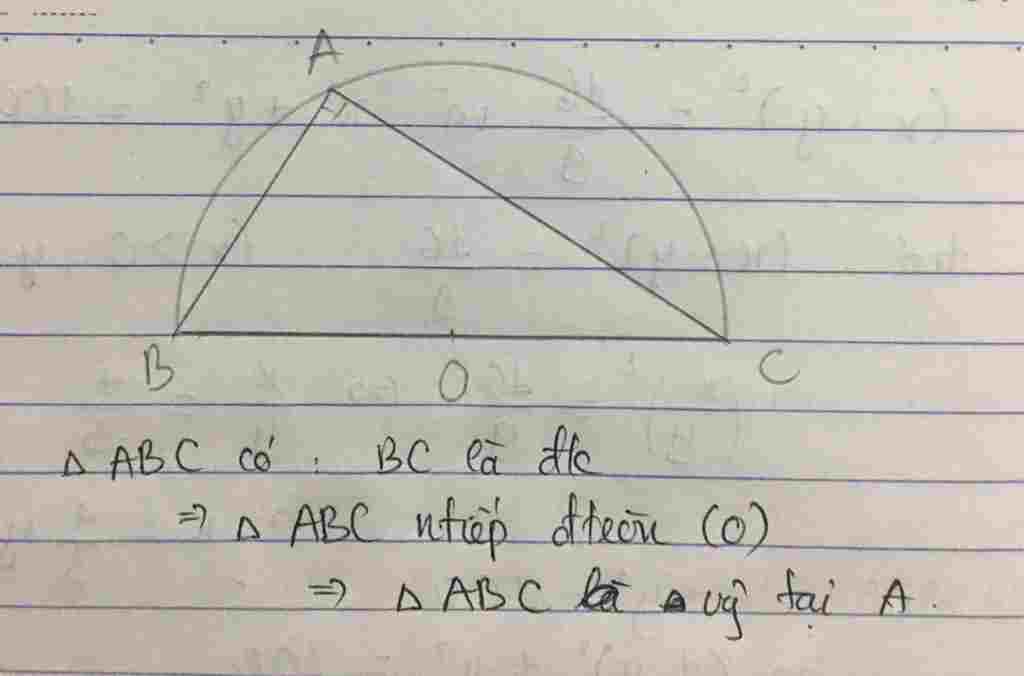 A
B O C
Δ ABC có : BC là đk
=> Δ ABC ntiếp đtròn (O)
=> Δ ABC là Δ vĝ tại A.